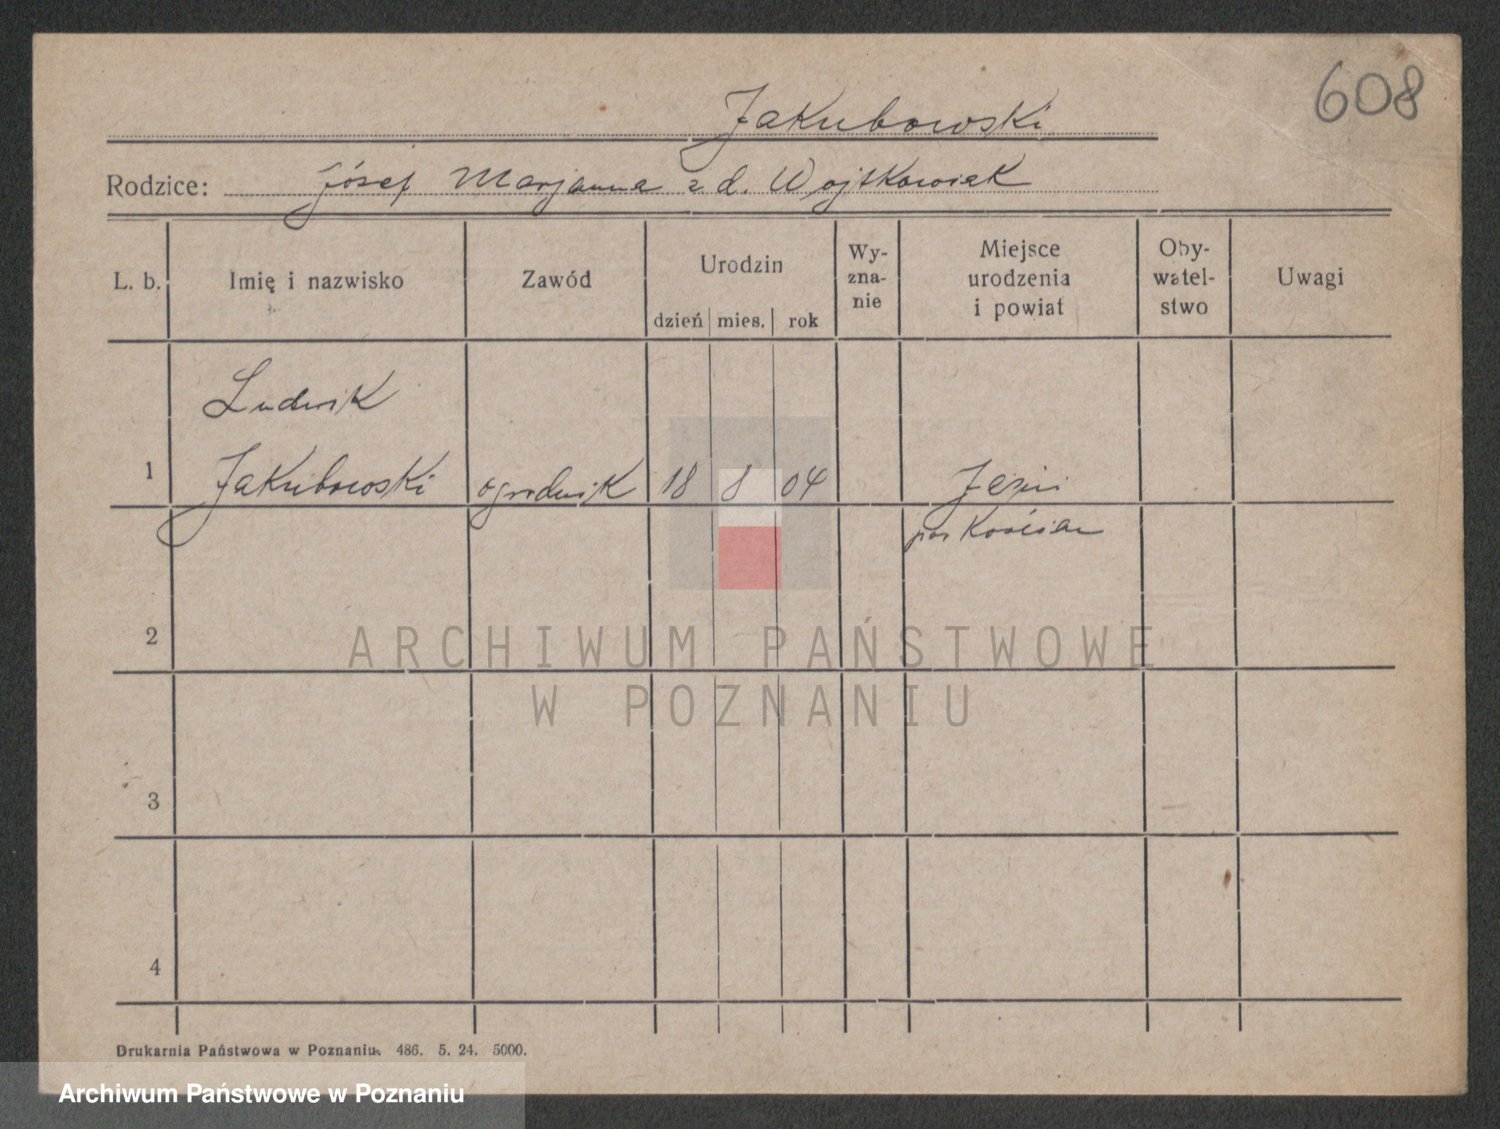 608
Jakubowski
Rodzice: Józef Marjanna z d. Wojtkowiak
L. b. Imię i nazwisko Zawód Urodzin dzień mies. rok Wy-zna-nie Miejsce urodzenia i powiat Oby-watel-stwo Uwagi
Ludwik
1 Jakubowski ogrodnik 18 8 04
pow Kościan
2
ARCHIWUM PAŃSTWOWE
W POZNANIU
3
4
Drukarnia Państwowa w Poznaniu. 486. 5. 24. 5000.
Archiwum Państwowe w Poznaniu